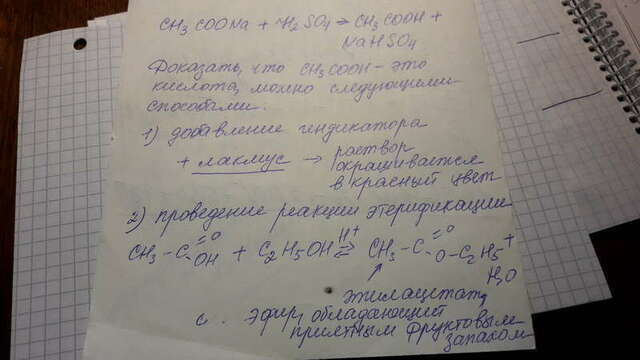 CH3 COONa + H2SO4 → CH3COOH +
NaHSO4
Доказать, что CH3COOH - это
кислота, можно следующими
способами:
1) добавление индикатора
+ лакмус → раствор
окрашивается
в красный цвет
2) проведение реакции этерификации
CH3 - C =O OH + C2H5OH ⇌ H+ CH3 - C =O O-C2H5 +
H2O
этилацетат,
эфир, обладающий
приятным фруктовым
запахом